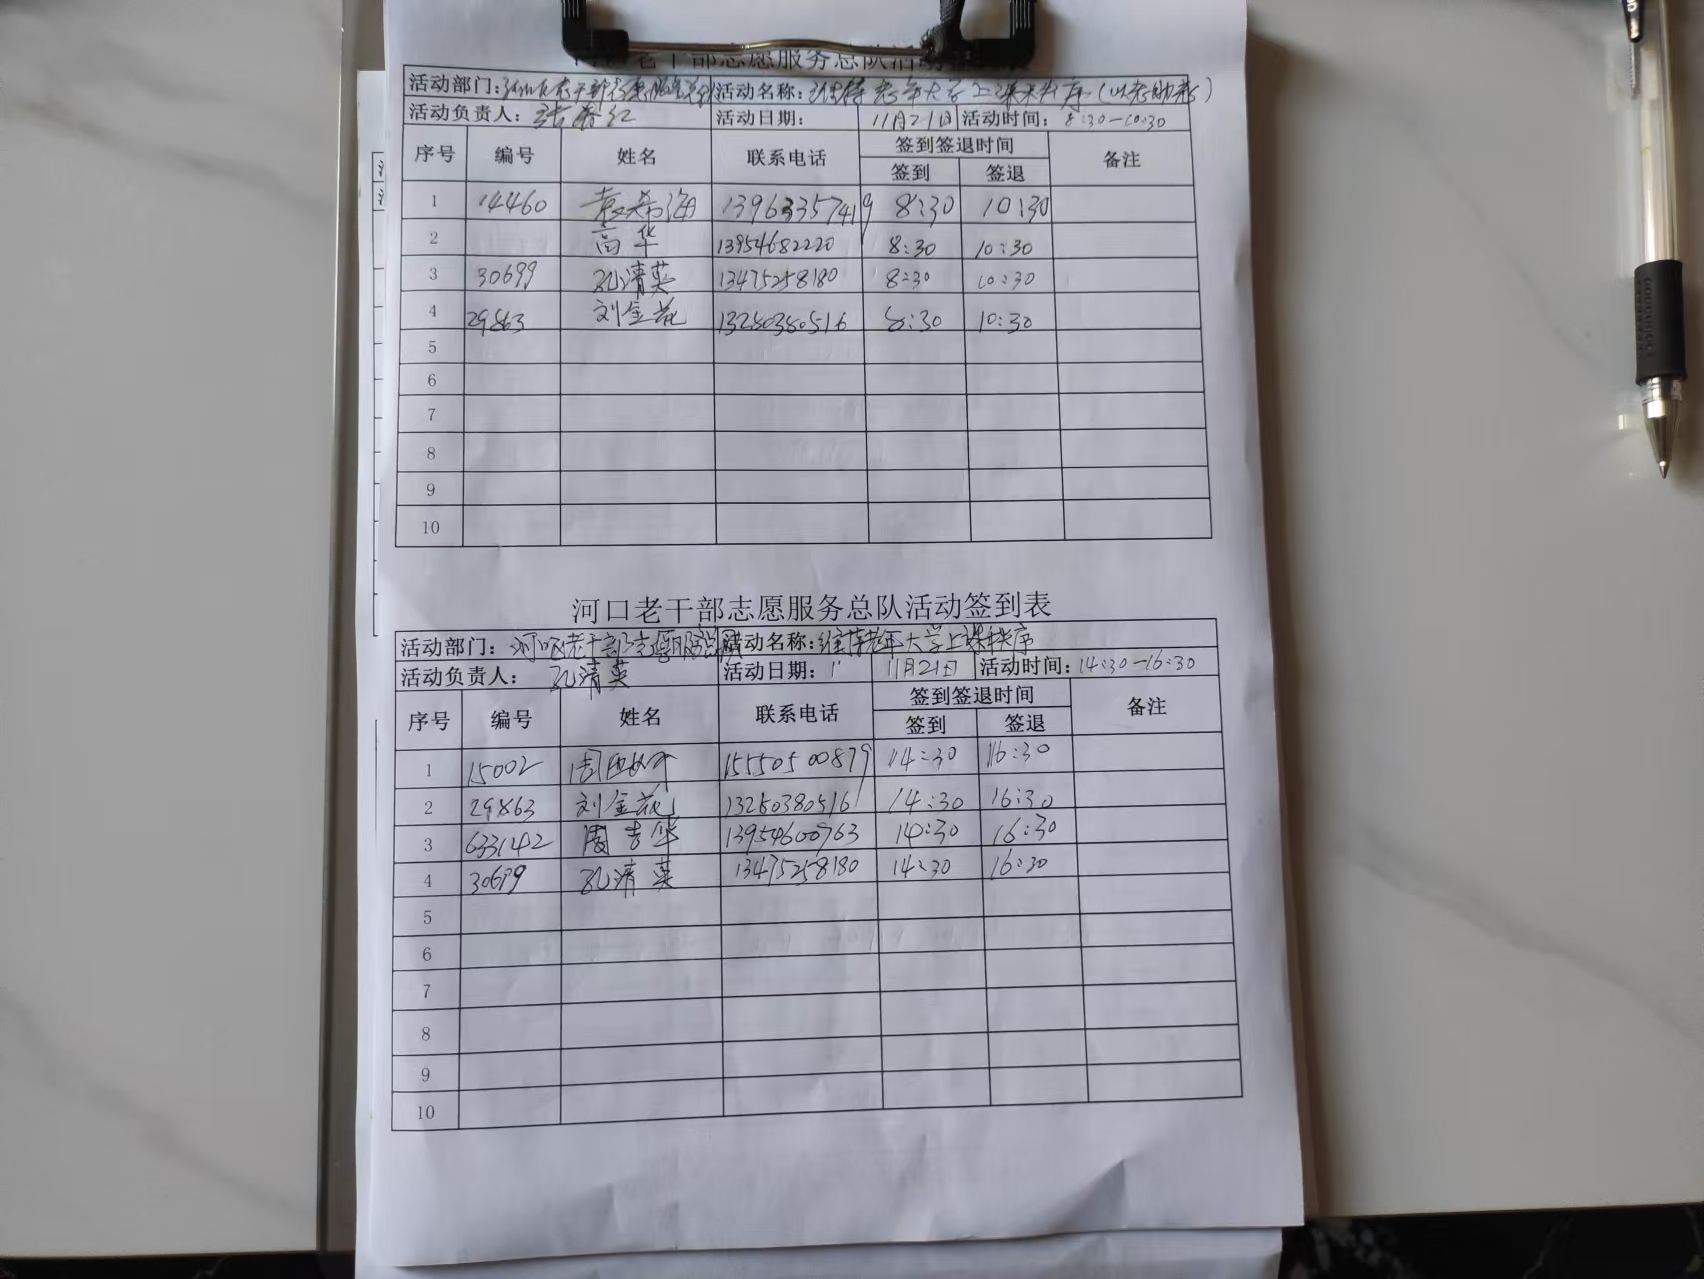 河口老干部志愿服务总队活动签到表
活动部门：河口区老干部志愿服务总队 活动名称：维持老年大学上课秩序（以老助老）
活动负责人：张春红 活动日期： 11月21日 活动时间：8:30-10:30
序号 编号 姓名 联系电话 签到签退时间 备注
签到 签退
1 14460 袁希海 13963357419 8:30 10:30
2 高华 13954682220 8:30 10:30
3 30699 孔清英 13475258180 8:30 10:30
4 29863 刘金花 13280380516 8:30 10:30
5
6
7
8
9
10
河口老干部志愿服务总队活动签到表
活动部门：河口区老干部志愿服务总队 活动名称：维持老年大学上课秩序
活动负责人： 孔清英 活动日期： 11月21日 活动时间：14:30-16:30
序号 编号 姓名 联系电话 签到签退时间 备注
签到 签退
1 15002 周 15550500879 14:30 16:30
2 29863 刘金花 13280380516 14:30 16:30
3 633142 周吉华 13954600763 14:30 16:30
4 30699 孔清英 13475258180 14:30 16:30
5
6
7
8
9
10